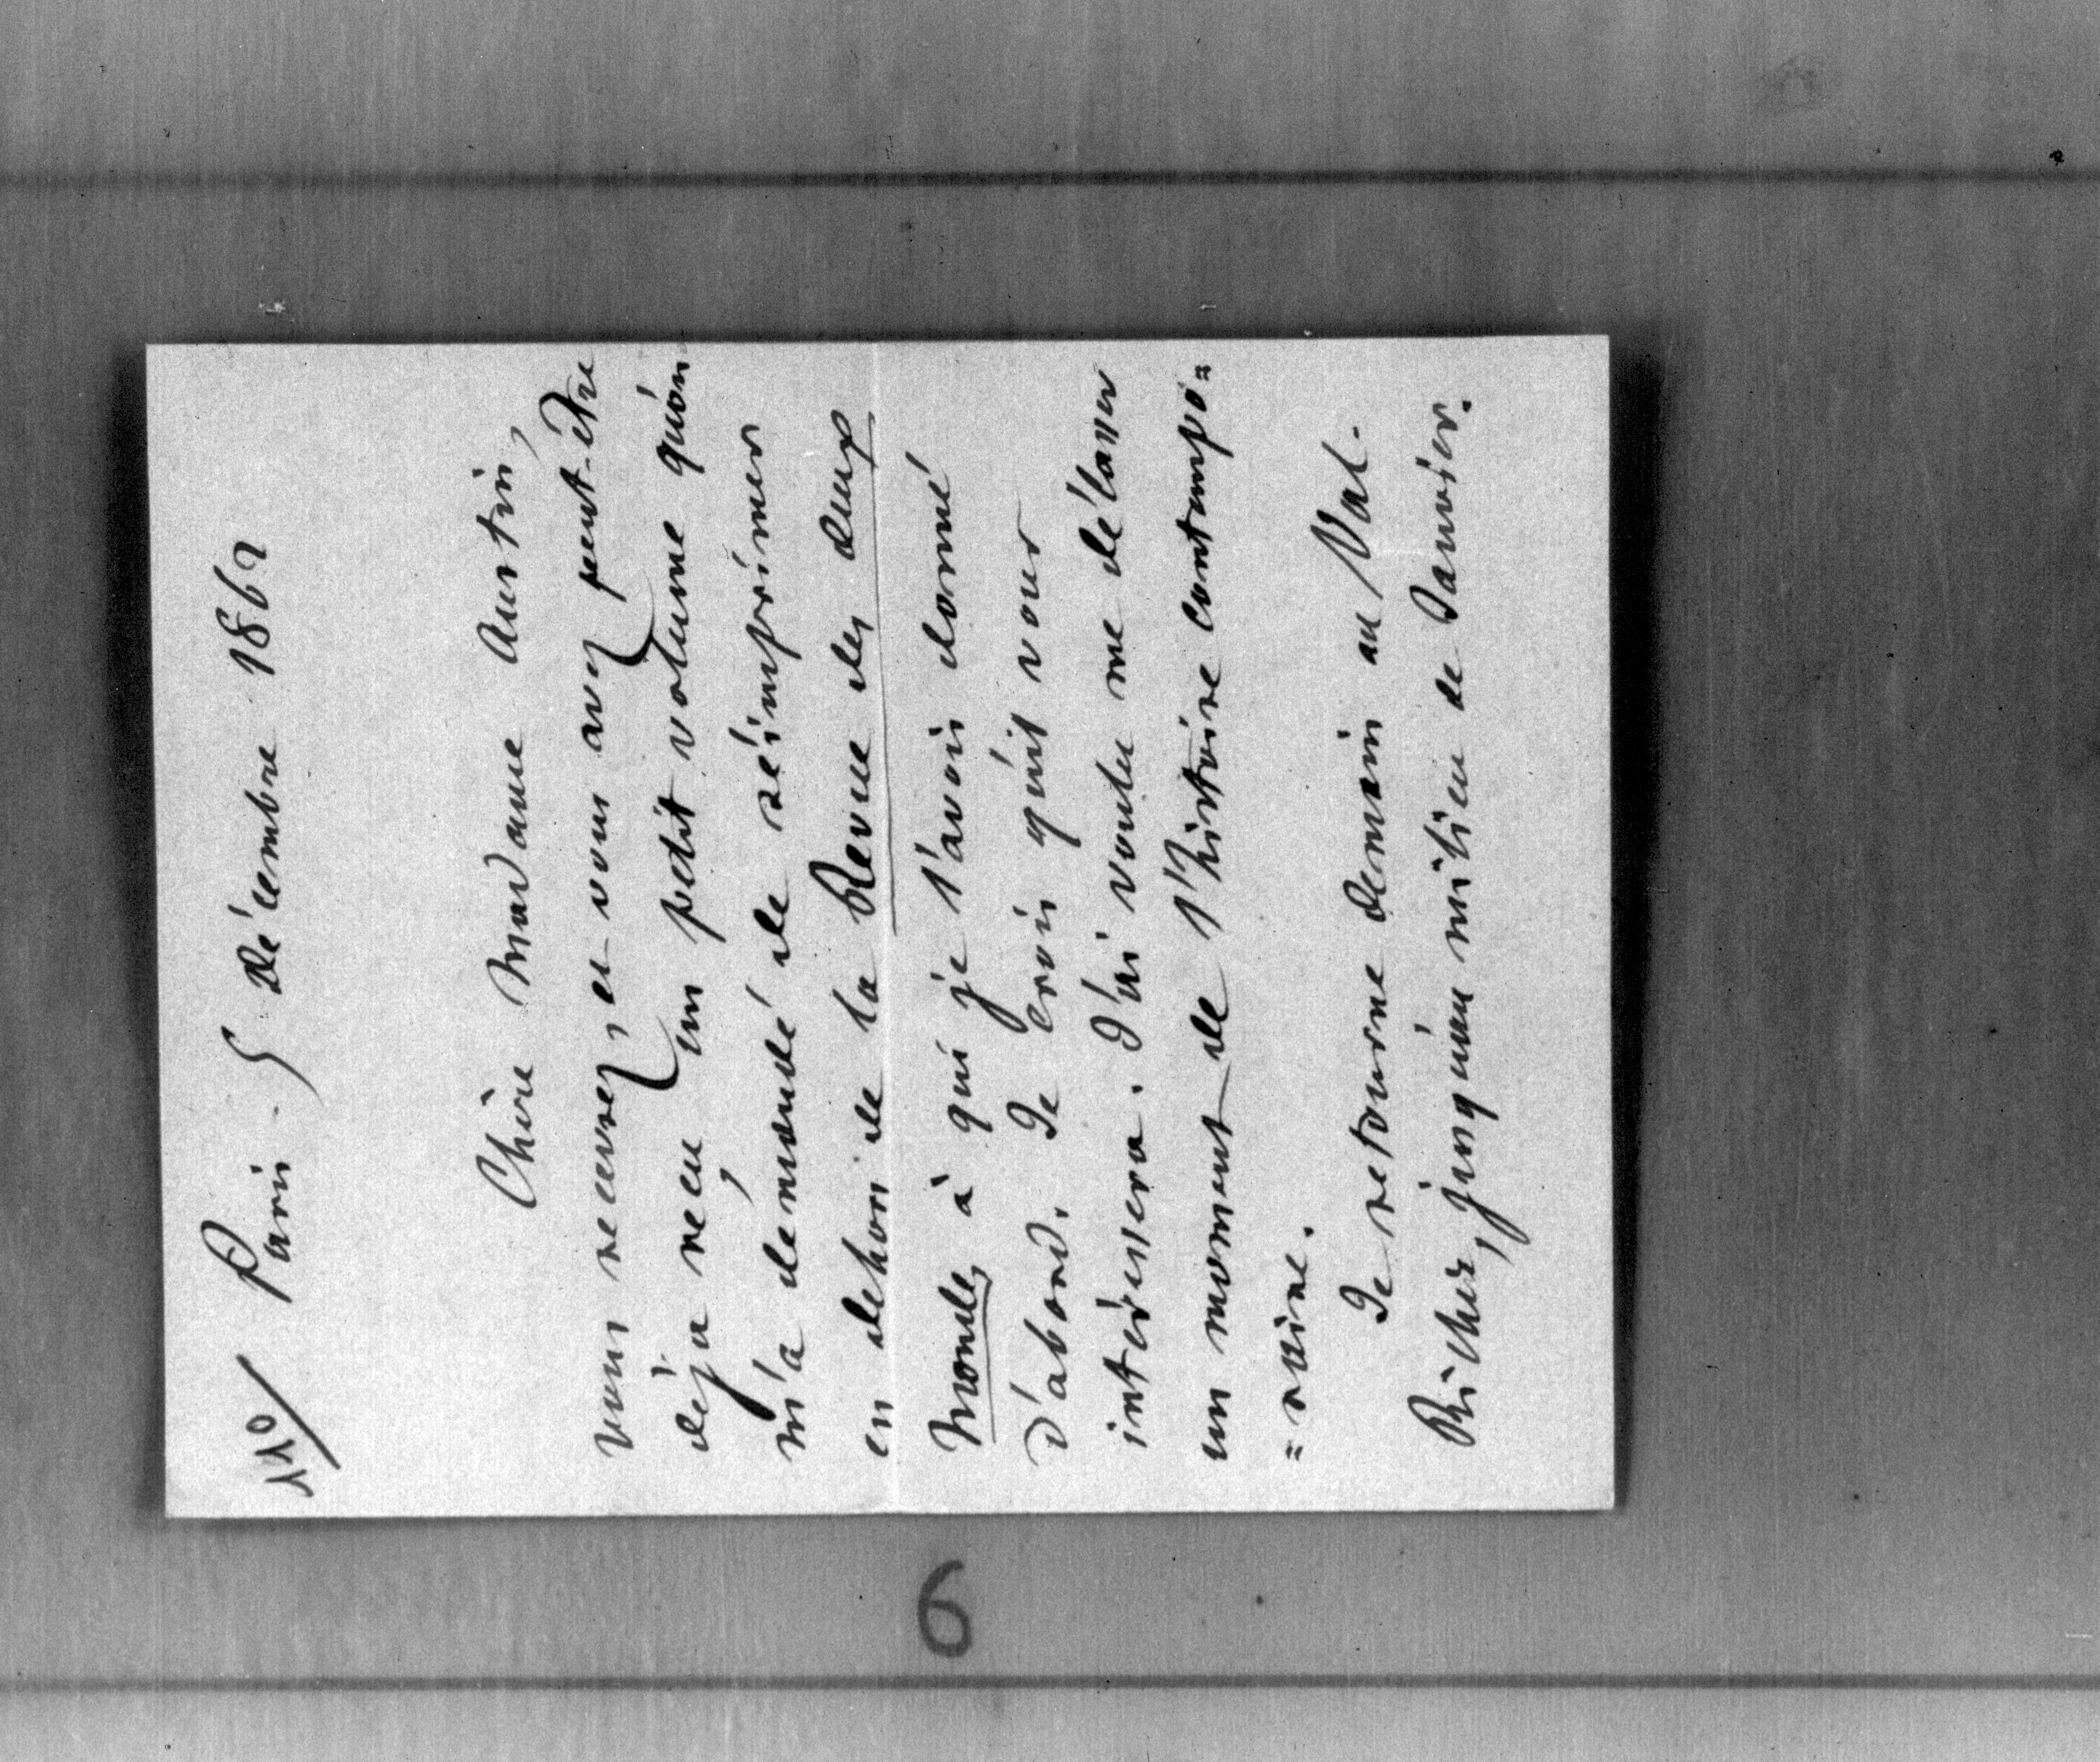 110/ Paris. 5 Décembre 1862
Chère Madame Austin,
vous recevrez, et vous avez peut-être
déja reçu un petit volume qu'on
m'a demandé de réimprimer
en dehors de la Revue des deux
mondes à qui je l'avois donné
d'abord. Je crois qu'il vous
intéressera. J'ai voulu me délasser
un moment de l'histoire contempo=
=raine.
Je retourne demain au Val-
Richer, jusqu'au milieu de Janvier.
6